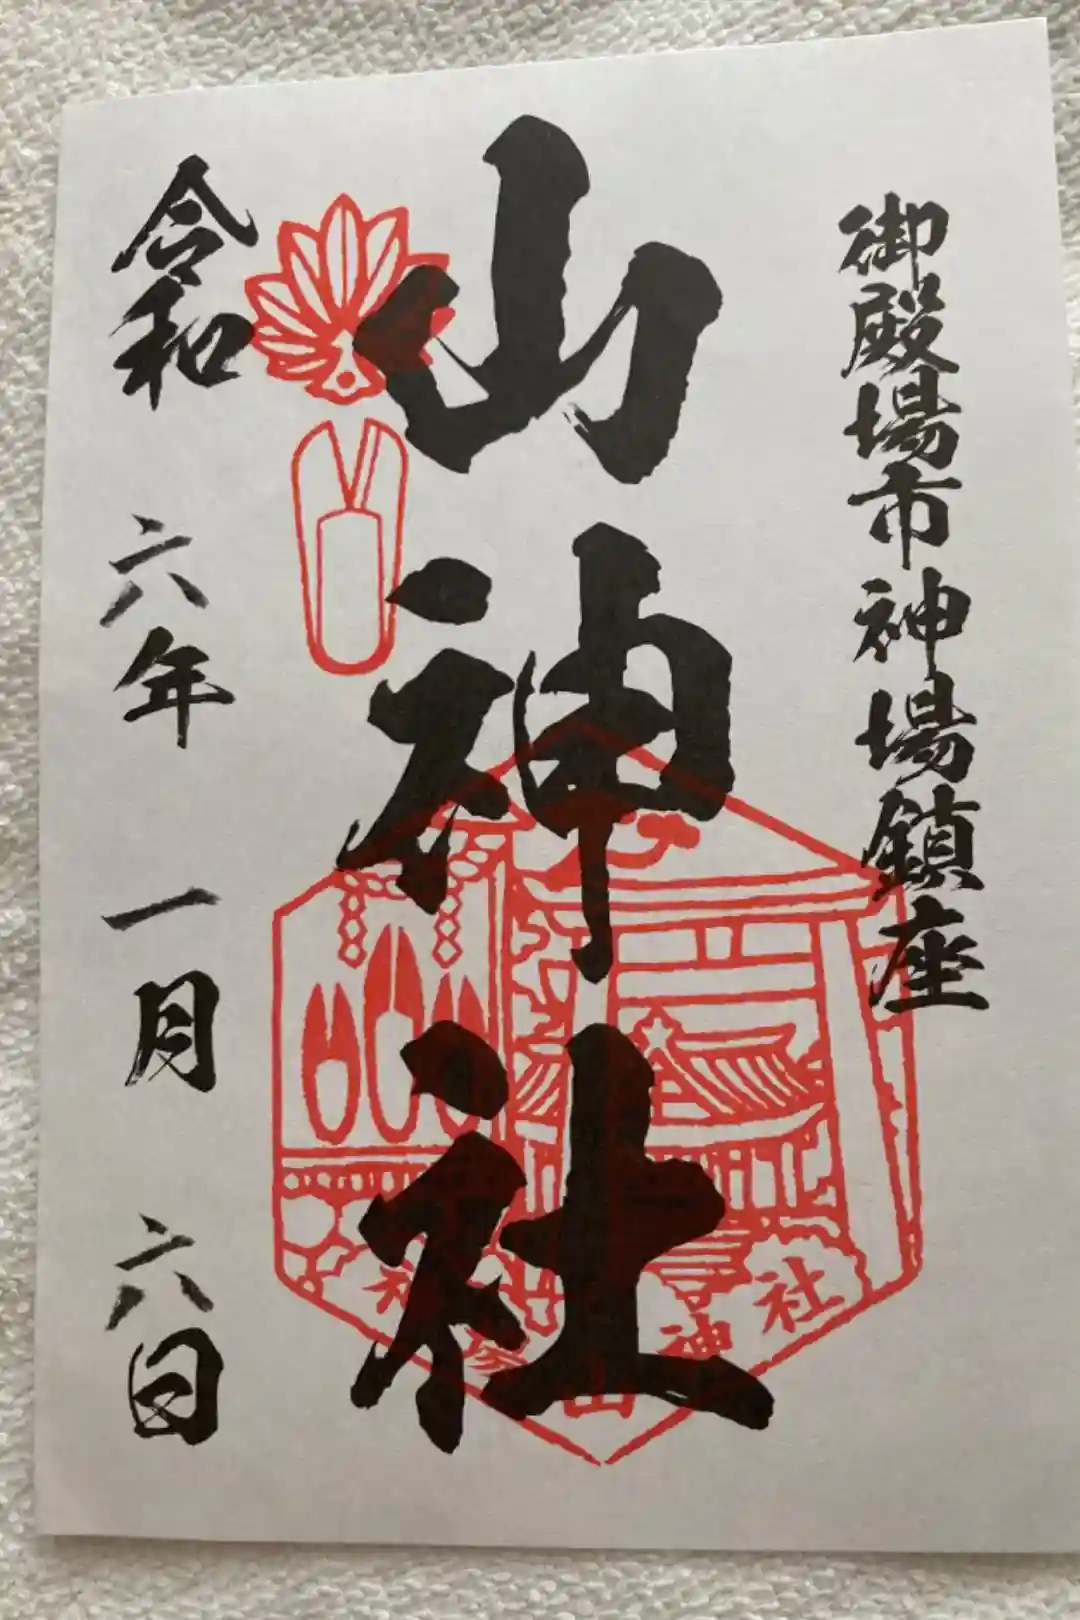 御殿場市神場鎮座
山神社
令和 六年 一月 六日
神
山神社